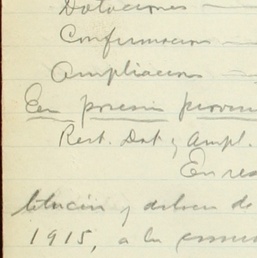 Dotaciones —
Confirmacion —
Ampliacion —
En posesión provin
Rest. Dot y Ampl.
En res
titución y
1915, a la